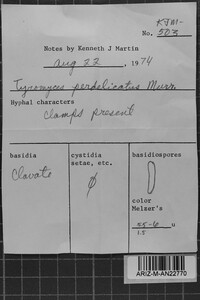 KJM-
No. 503
Notes by Kenneth J Martin
Aug 22, 1974
Tyromyces perdelicatus Murr.
Hyphal characters
Clamps present
basidia
cystidia
setae, etc.
basidiospores
Clavate
color
Melzer's
u
ARIZ-M-AN22770